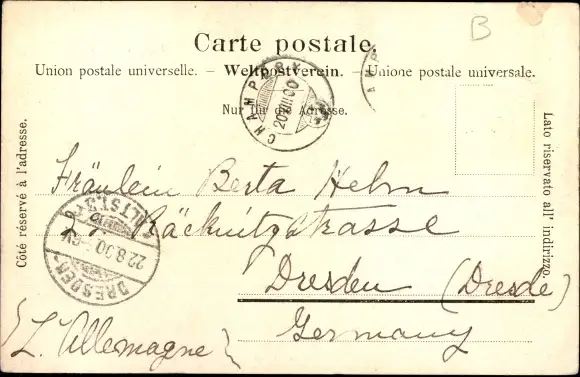 B
Carte postale.
Union postale universelle. – Weltpostverein. – Unione postale universale.
Nur für die Adresse.
CHAMPÉRY
20 VIII 00
CHAMP
Côté réservé à l'adresse.
Lato riservato all' indirizzo.
Fräulein Berta Hehn
27 Räcknitzstrasse
Dresden (Dresde)
Germany
{L'Allemagne}
DRESDEN-ALTST.
22.8.00